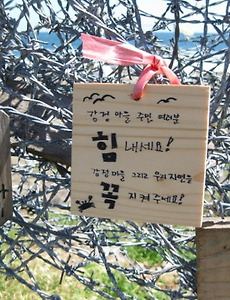 강정 마을 주민 여러분
힘 내세요!
강정 마을 그리고 우리 자연을
꼭 지켜 주세요!